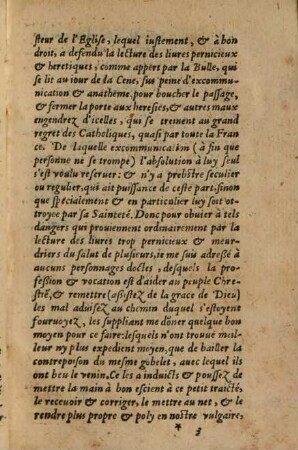 steur de l'Eglise, lequel iustement, & à bon
droit, a defendu la lecture des liures pernicieux
& heretiques, comme appert par la Bulle, qui
se lit au iour de la Cene, sus peine d'excommu-
nication & anathéme. pour boucher le passage,
& fermer la porte aux heresies, & autres maux
engendrez d'icelles, qui se treinent au grand
regret des Catholiques, quasi par toute la Fran
ce. De laquelle excommunication (à fin que
personne ne se trompe) l'absolution à luy seul
s'est voulu reseruer: & n'y a prebstre seculier
ou regulier, qui ait puissance de ceste part, sinon
que specialement & en particulier luy soit ot-
troyee par sa Sainteté. Donc pour obuier à tels
dangers qui prouiennent ordinairement par la
lecture des liures trop pernicieux & meur-
driers du salut de plusieurs, ie me suis adressé à
aucuns personnages doctes, desquels la pro-
fession & vocation est d'aider au peuple Chre-
stiē, & remettre (assistez de la grace de Dieu)
les mal aduisez au chemin duquel s'estoyent
fouruoyez, les suppliant me dōner quelque bon
moyen pour ce faire: lesquels n'ont trouué meil-
leur ny plus expedient moyen, que de bailler la
contrepoison du mesme gobelet, auec lequel ils
ont beu le venin. Ce les a induicts & poussez de
mettre la main à bon escient à ce petit traicté,
le receuoir & corriger, le mettre au net, & le
rendre plus propre & poly en nostre vulgaire,
* 3